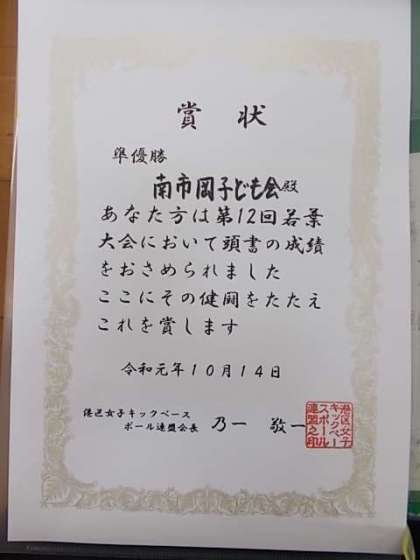 賞状
準優勝
南市岡子ども会殿
あなた方は第12回若葉
大会において頭書の成績
をおさめられました
ここにその健闘をたたえ
これを賞します
令和元年10月14日
港区女子キックベース
ボール連盟会長 乃一 敬一
港区女子
キックベー
スボール
連盟之印